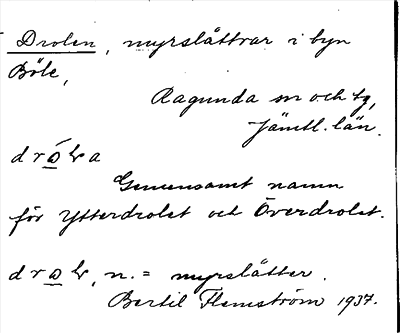 Drolen, myrslåttrar i byn
Böle,
Ragunda sn och tg,
Jämtl. län.
Gemensamt namn
för Ytterdrolet och Överdrolet.
n. = myrslåtter.
Bertil Flemström 1937.